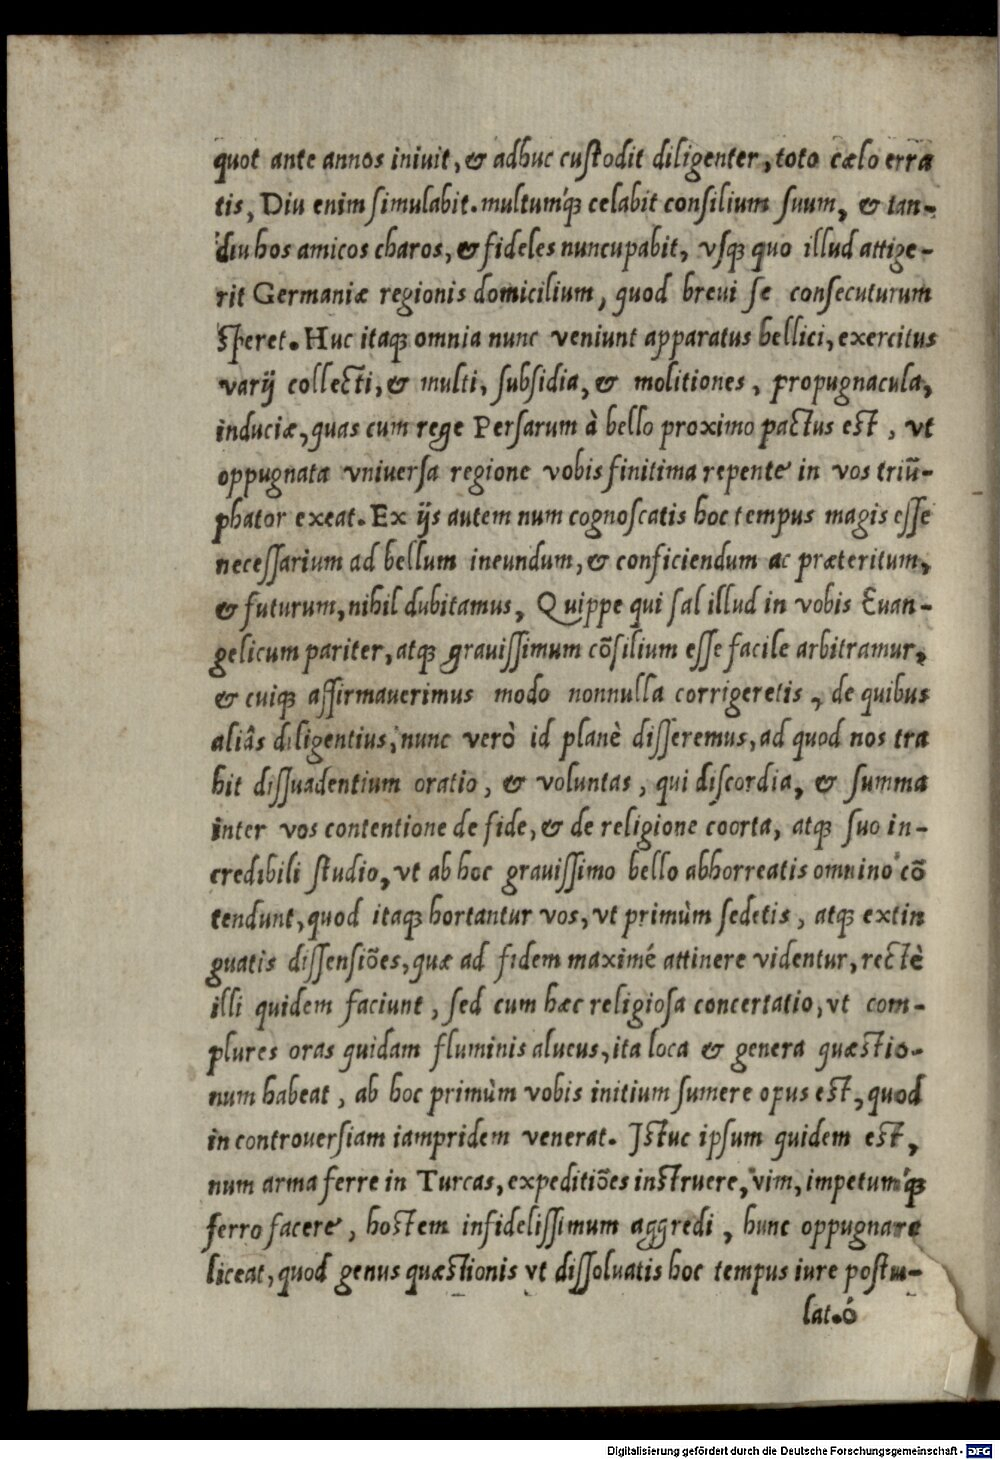 quot ante annos iniuit, & adhuc custodit diligenter, toto cælo erra
tis, Diu enim simulabit. multumq́ꝫ celabit consilium suum, & tan-
diu hos amicos charos, & fideles nuncupabit, vsqꝫ quo illud attige-
rit Germaniæ regionis domicilium, quod breui se consecuturum
speret. Huc itaqꝫ omnia nunc veniunt apparatus bellici, exercitus
varij collecti, & multi, subsidia, & molitiones, propugnacula,
induciæ, quas cum rege Persarum à bello proximo pactus est, vt
oppugnata vniuersa regione vobis finitima repente in vos triū-
phator exeat. Ex ijs autem num cognoscatis hoc tempus magis esse
necessarium ad bellum ineundum, & conficiendum ac præteritum,
& futurum, nihil dubitamus, Quippe qui sal illud in vobis Euan-
gelicum pariter, atqꝫ grauissimum cõsilium esse facile arbitramur,
& cuiqꝫ affirmauerimus modo nonnulla corrigeretis, de quibus
aliâs diligentius, nunc verò id planè disseremus, ad quod nos tra
hit dissuadentium oratio, & voluntas, qui discordia, & summa
inter vos contentione de fide, & de religione coorta, atqꝫ suo in-
credibili studio, vt ab hoc grauissimo bello abhorreatis omnino cõ
tendunt, quod itaqꝫ hortantur vos, vt primùm sedetis, atqꝫ extin
guatis dissensiões, quæ ad fidem maximé attinere videntur, rectè
illi quidem faciunt, sed cum hæc religiosa concertatio, vt com-
plures oras quidam fluminis alueus, ita loca & genera quæstio-
num habeat, ab hoc primùm vobis initium sumere opus est, quod
in controuersiam iampridem venerat. Istuc ipsum quidem est,
num arma ferre in Turcas, expeditiões instruere, vim, impetumq́ꝫ
ferro facere, hostem infidelissimum aggredi, hunc oppugnare
liceat, quod genus quæstionis vt dissoluatis hoc tempus iure postu-
lat. ó
Digitalisierung gefördert durch die Deutsche Forschungsgemeinschaft - DFG